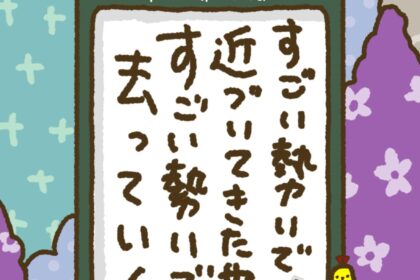 すごい勢いで
近づいてきた
すごい勢いで
去っていく